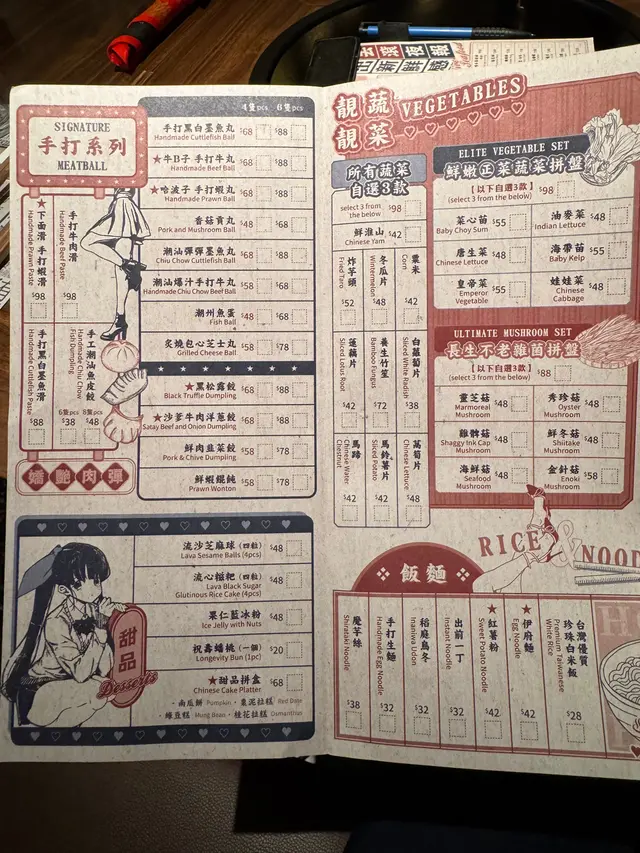 SIGNATURE
手打系列
MEATBALL
4隻pcs 6隻pcs
手打黑白墨魚丸 $68 $88
Handmade Cuttlefish Ball
★牛B子 手打牛丸 $68 $88
Handmade Beef Ball
★哈波子 手打蝦丸 $68 $88
Handmade Prawn Ball
香菇貢丸 $48 $68
Pork and Mushroom Ball
潮汕彈彈墨魚丸 $68 $88
Chiu Chow Cuttlefish Ball
潮汕爆汁手打牛丸 $58 $88
Handmade Chiu Chow Beef Ball
潮州魚蛋 $48 $68
Fish Ball
炙燒包心芝士丸 $58 $78
Grilled Cheese Ball
★黑松露餃 $68 $88
Black Truffle Dumpling
★沙爹牛肉洋蔥餃 $68 $88
Satay Beef and Onion Dumpling
鮮肉韭菜餃 $58 $78
Pork & Chive Dumpling
鮮蝦餛飩 $58 $78
Prawn Wonton
★下面滑 手打蝦滑
Handmade Prawn Paste
$98
手打牛肉滑
Handmade Beef Paste
$98
手打黑白墨魚滑
Handmade Cuttlefish Paste
$88
手工潮汕魚皮餃
Handmade Chiu Chow
Fish Dumpling
6隻pcs 8隻pcs
$38 $48
嬌艷肉彈
流沙芝麻球（四粒） $48
Lava Sesame Balls (4pcs)
流心糍粑（四粒） $48
Lava Black Sugar
Glutinous Rice Cake (4pcs)
果仁藍冰粉 $48
Ice Jelly with Nuts
祝壽蟠桃（一個） $20
Longevity Bun (1pc)
★甜品拼盒 $68
Chinese Cake Platter
·南瓜餅 Pumpkin ·棗泥拉糕 Red Date
·綠豆糕 Mung Bean ·桂花拉糕 Osmanthus
甜品
Desserts
靚蔬
靚菜
VEGETABLES
所有蔬菜
自選3款
select 3 from
the below $98
鮮淮山 $42
Chinese Yam
炸芋頭
Fried Taro
$52
冬瓜片
Wintermelon
$48
粟米
Corn
$42
蓮藕片
Sliced Lotus Root
$42
養生竹笙
Bamboo Fungus
$72
白蘿蔔片
Sliced White Radish
$38
馬蹄
Chinese Water
Chestnut
$42
馬鈴薯片
Sliced Potato
$42
萵筍片
Chinese Lettuce
$48
ELITE VEGETABLE SET
鮮嫩正菜蔬菜拼盤
【以下自選3款】
(select 3 from the below) $98
菜心苗 $55
Baby Choy Sum
油麥菜 $48
Indian Lettuce
唐生菜 $48
Chinese Lettuce
海帶苗 $55
Baby Kelp
皇帝菜 $55
Emperor
Vegetable
娃娃菜 $48
Chinese
Cabbage
ULTIMATE MUSHROOM SET
長生不老雜菌拼盤
【以下自選3款】
(select 3 from the below) $88
靈芝菇 $48
Marmoreal
Mushroom
秀珍菇 $48
Oyster
Mushroom
雞髀菇 $48
Shaggy Ink Cap
Mushroom
鮮冬菇 $48
Shiitake
Mushroom
海鮮菇 $48
Seafood
Mushroom
金針菇 $58
Enoki
Mushroom
RICE & NOOD
飯麵
魔芋絲
Shirataki Noodle
$38
手打生麵
Handmade Egg Noodle
$32
稻庭烏冬
Inaniwa Udon
$32
出前一丁
Instant Noodle
$32
★紅薯粉
Sweet Potato Noodle
$42
★伊府麵
Egg Noodle
$42
台灣優質
珍珠白米飯
Premium Taiwanese
White Rice
$28